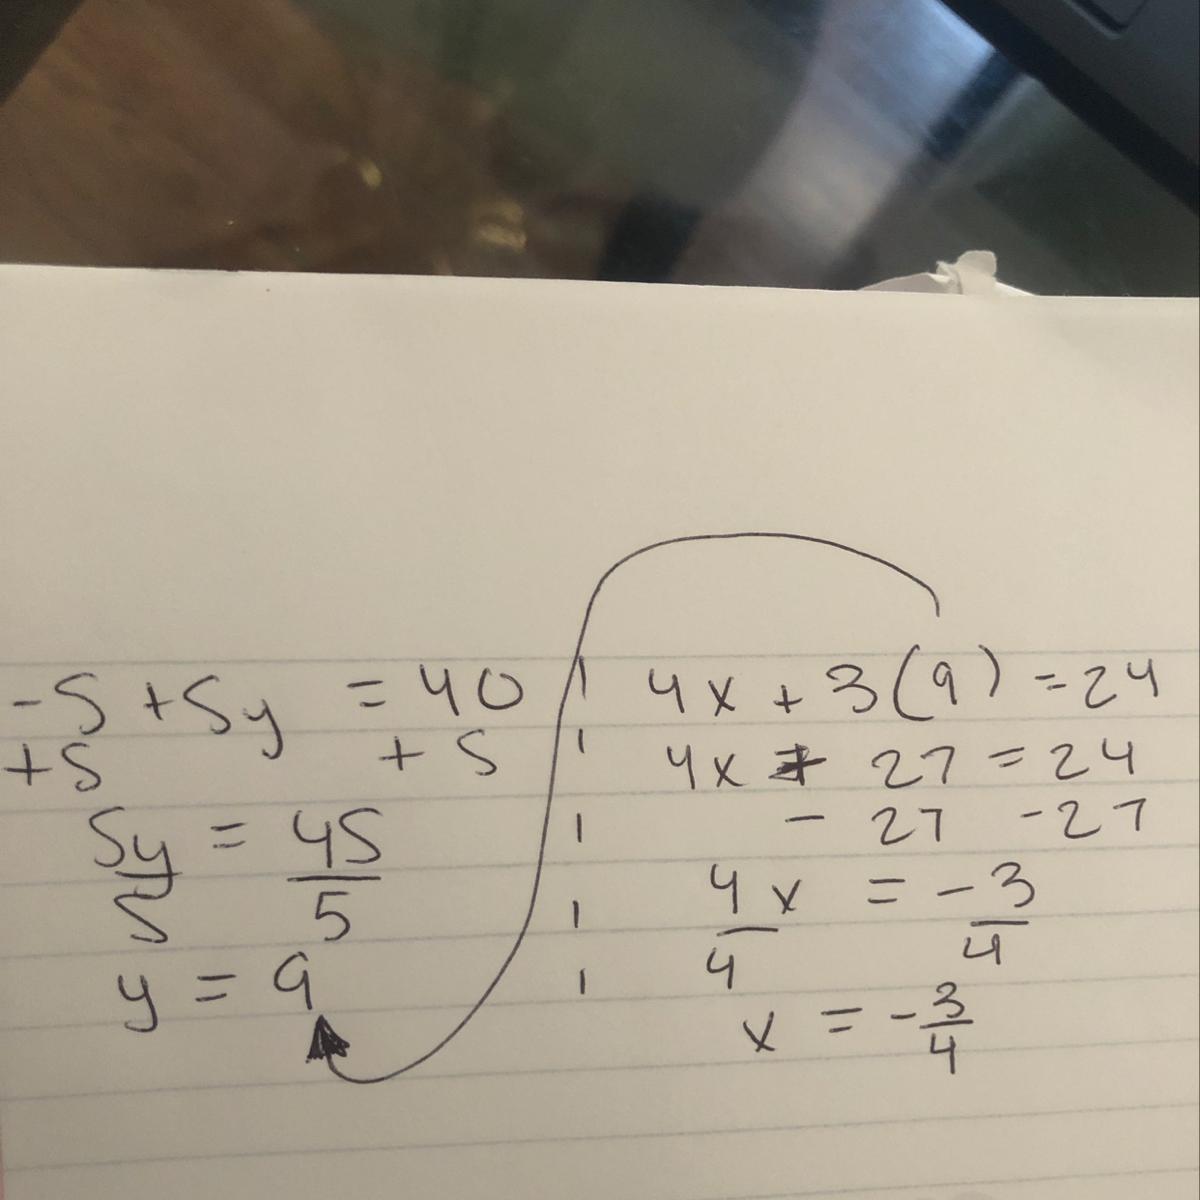 -5 + 5y = 40
+5 + 5
5y = 45
5 5
y = 9
4x + 3(9) = 24
4x + 27 = 24
- 27 -27
4x = -3
4 4
x = -3/4